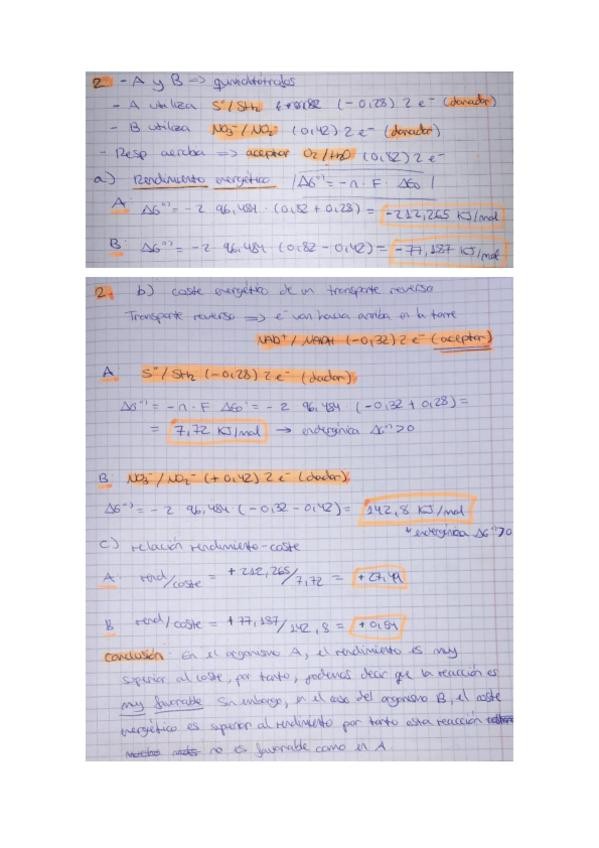 2 - A y B => quimiolitótrofos
- A utiliza S°/SH2 (-0,28) 2 e- (donador)
- B utiliza NO3-/NO2- (0,42) 2 e- (donador)
- Resp aerobia => aceptor O2/H2O (0,82) 2 e-
a) Rendimiento energético |ΔG°' = -n · F · ΔE0|
A: ΔG°' = -2 96,484 · (0,82 + 0,28) = -212,265 KJ/mol
B: ΔG°' = -2 96,484 (0,82 - 0,42) = -77,187 KJ/mol
2. b) coste energético de un transporte reverso
Transporte reverso => e- van hacia arriba en la torre
NAD+/NADH (-0,32) 2 e- (aceptor)
A S°/SH2 (-0,28) 2 e- (dador)
ΔG°' = -n · F ΔE0' = -2 96,484 (-0,32 + 0,28) =
= 7,72 KJ/mol → endergónica ΔG°'>0
B: NO3-/NO2- (+0,42) 2 e- (dador)
ΔG°' = -2 96,484 · (-0,32 - 0,42) = 142,8 KJ/mol
* endergónica ΔG°'>0
c) relación rendimiento-coste
A: rend/coste = +212,265/7,72 = +27,49
B rend/coste = +77,187/142,8 = +0,54
Conclusión: En el organismo A, el rendimiento es muy
superior al coste, por tanto, podemos decir que la reacción es
muy favorable. Sin embargo, en el caso del organismo B, el coste
energético es superior al rendimiento por tanto esta reacción
no es favorable como en A.